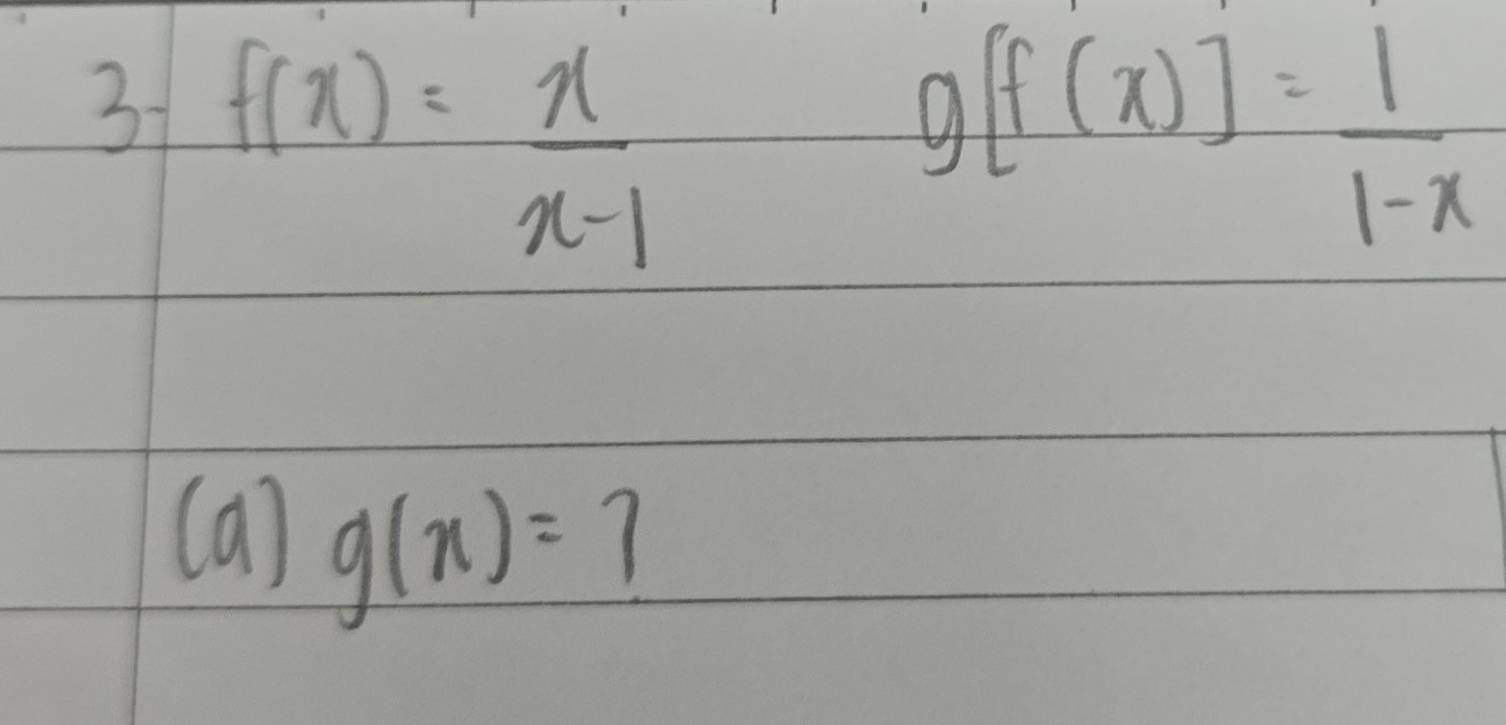 3- f(x) = x/(x-1) g[f(x)] = 1/(1-x)
(a) g(x) = ?